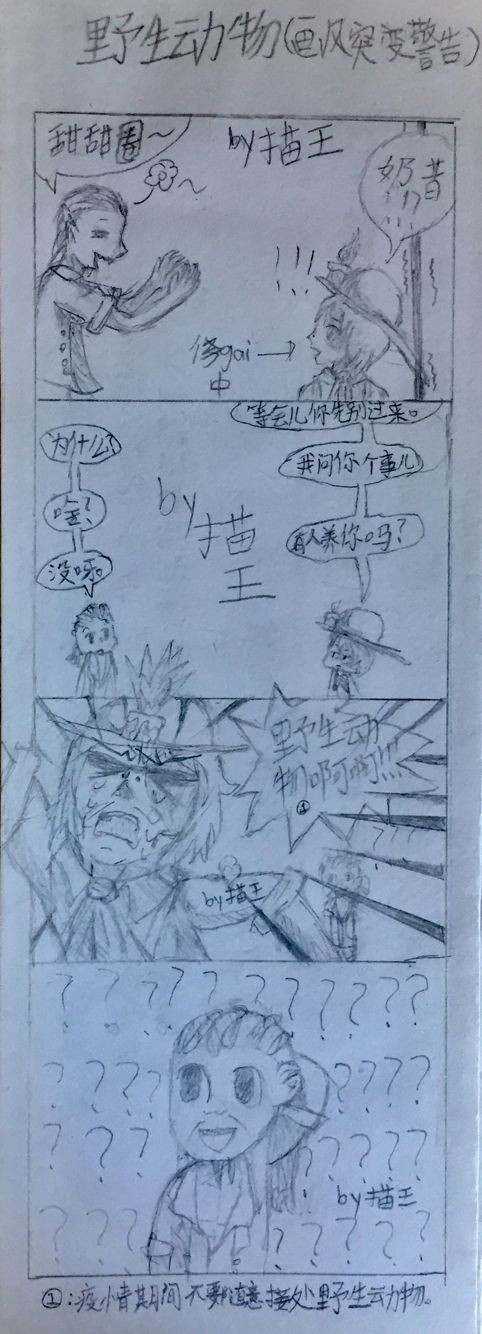 野生动物(画风突变警告)
甜甜圈~
by描王
奶昔
!!!?
!!!
修gai
中
等会儿你先别过来。
为什么?
我问你个事儿
啥?
有人养你吗?
没呀。
by
描
王
野生动
物啊啊!!!
①
???
by描王
? ? ? ? ? ? ? ? ? ? ?
? ? ? ? ? ? ? ?
? ? ? ? ? ? ? ?
by描王
? ? ? ? ? ? ? ?
①:疫情期间不要随意接处野生动物。